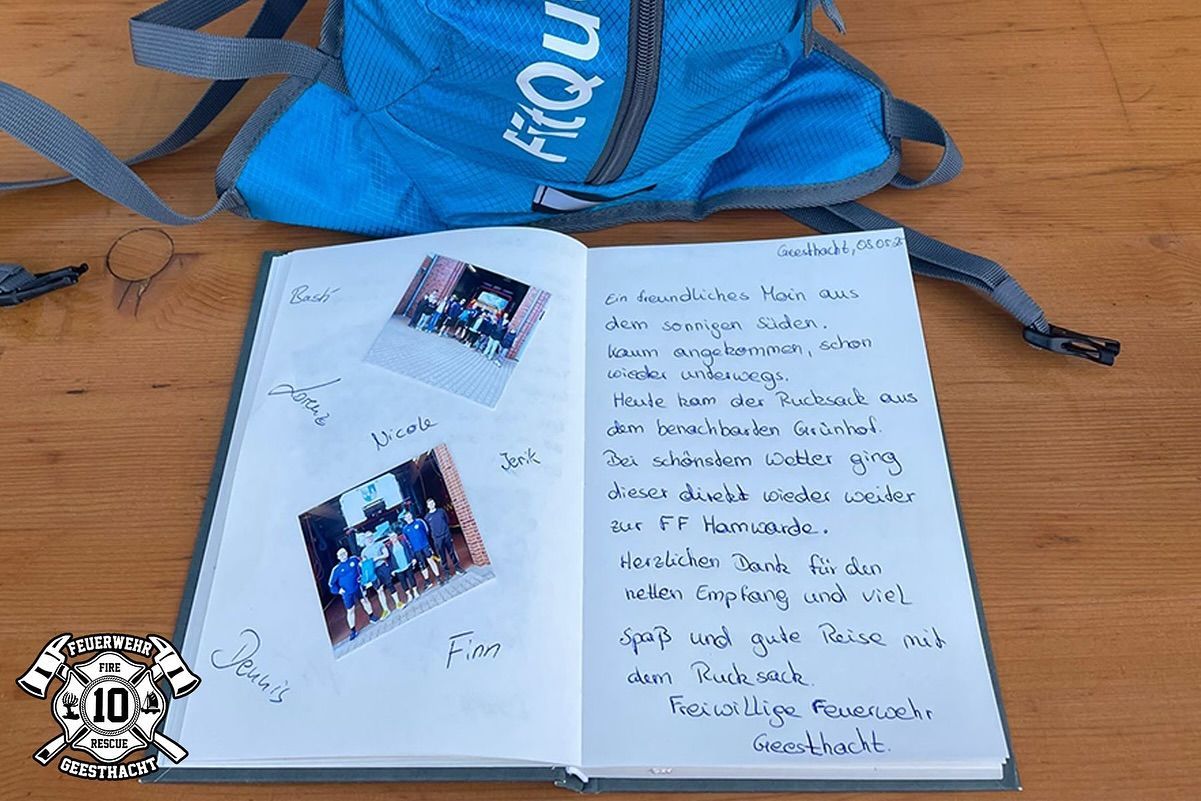 FitQu
Geesthacht, 03.05.2
Basti
Lorenz
Nicole
Jerik
Dennis
Finn
Ein freundliches Moin aus
dem sonnigen Süden.
Kaum angekommen, schon
wieder unterwegs.
Heute kam der Rucksack aus
dem benachbarten Grünhof.
Bei schönstem Wetter ging
dieser direkt wieder weiter
zur FF Hamwarde.
Herzlichen Dank für den
netten Empfang und viel
Spaß und gute Reise mit
dem Rucksack.
Freiwillige Feuerwehr
Geesthacht.
FEUERWEHR
FIRE
10
RESCUE
GEESTHACHT